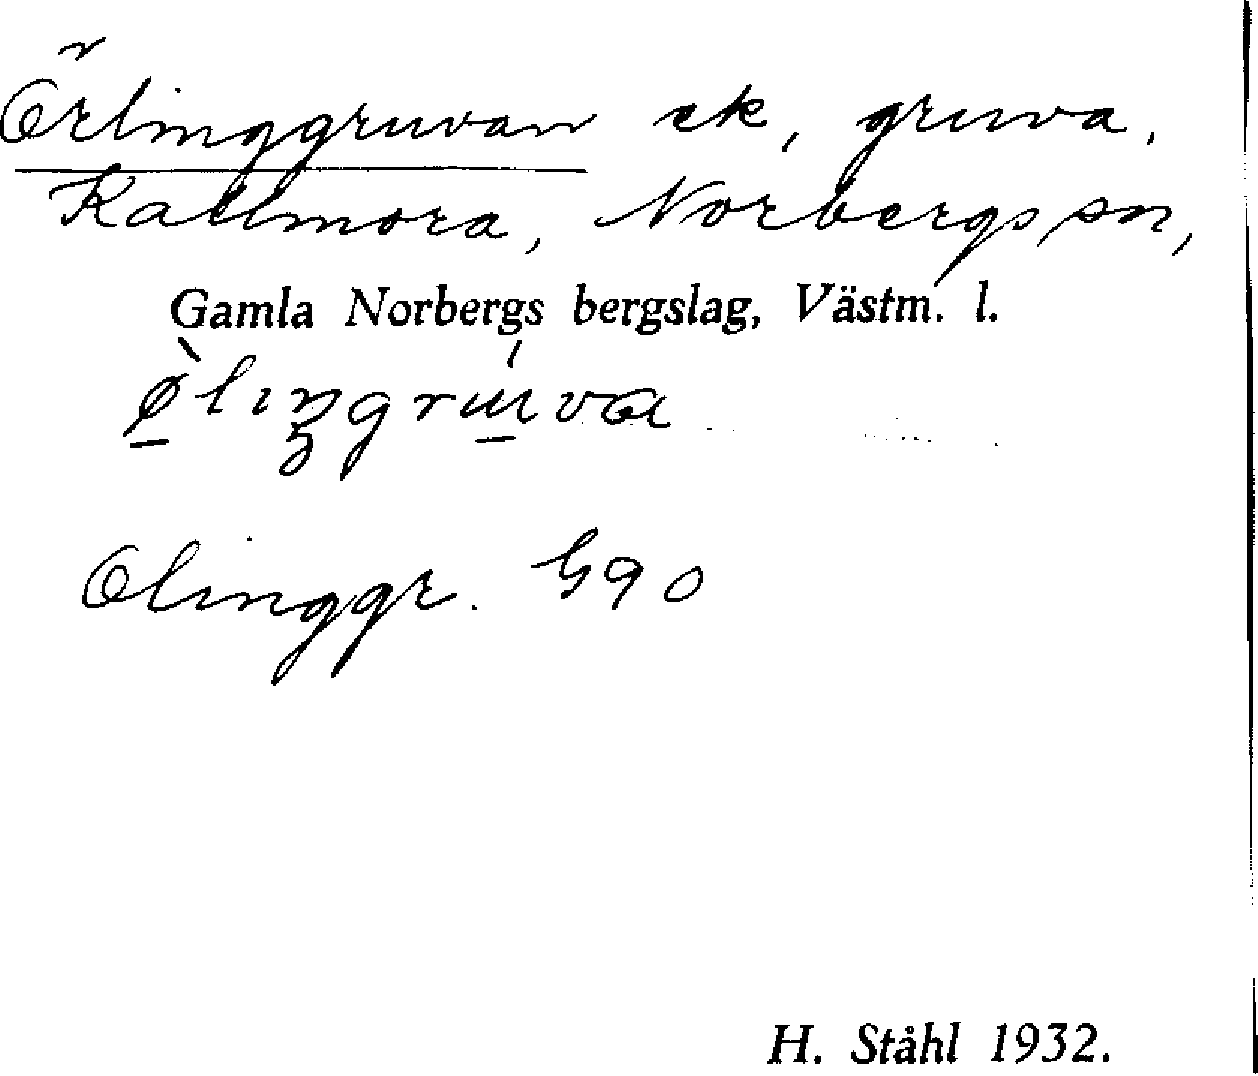 Örlinggruvan ek, gruva,
Kallmora, Norbergs sn,
Gamla Norbergs bergslag, Västm. l.
ø̠̀lıŋgrú̠va
Olinggr. G90
H. Ståhl 1932.